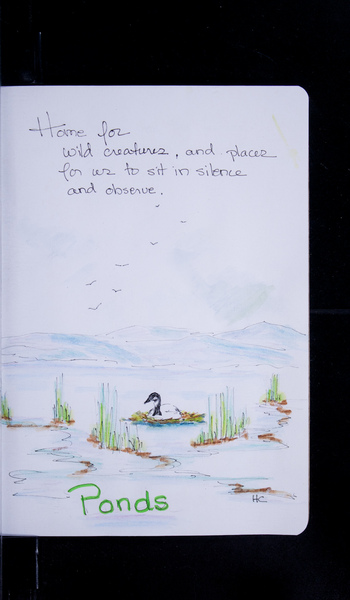 Home for
wild creatures, and places
for us to sit in silence
and observe.
Ponds
HC